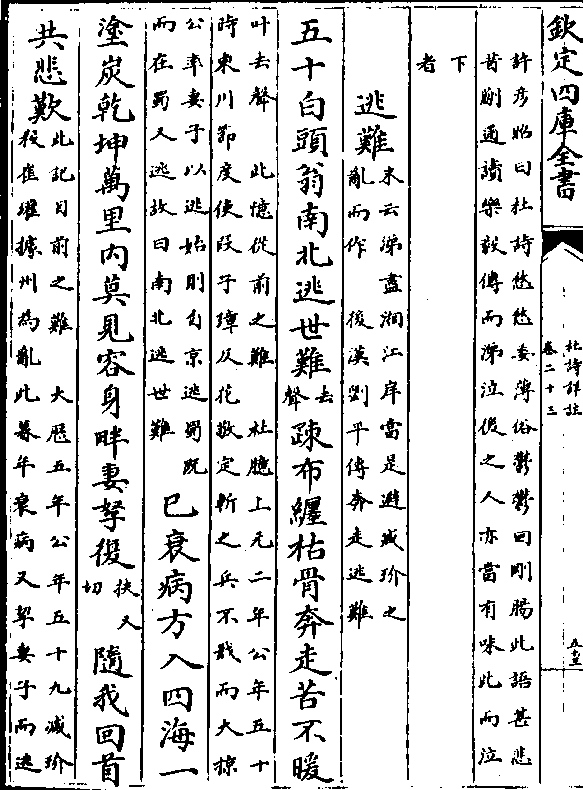 欽定四庫全書
杜詩詳註
卷二十三
許彥始曰杜詩悠悠委薄俗鬱鬱回剛腸此語甚悲
昔蒯通讀樂毅傳而涕泣後之人亦當有味此而泣
下
者
逃難
末云涕盡湘江岸當是避臧玠之
亂而作
後漢劉平傳奔走逃難
五十白頭翁南北逃世難
去
聲
疎布纏枯骨奔走苦不暖
叶去聲
此憶從前之難
杜臆上元二年公年五十
時東川節度使段子璋反花敬定斬之兵不戢而大掠
公率妻子以逃始則自京逃蜀既
而在蜀又逃故曰南北逃世難
已衰病方入四海一
塗炭乾坤萬里內莫見容身畔妻孥復
扶又
切
隨我回首
共悲歎
此記目前之難
大歷五年公年五十九臧玠
殺崔瓘據州為亂此暮年衰病又挈妻子而逃